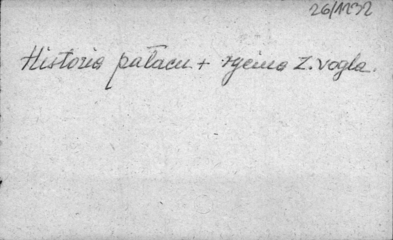 26/1132
Historia pałacu + rycina Z. Vogla.